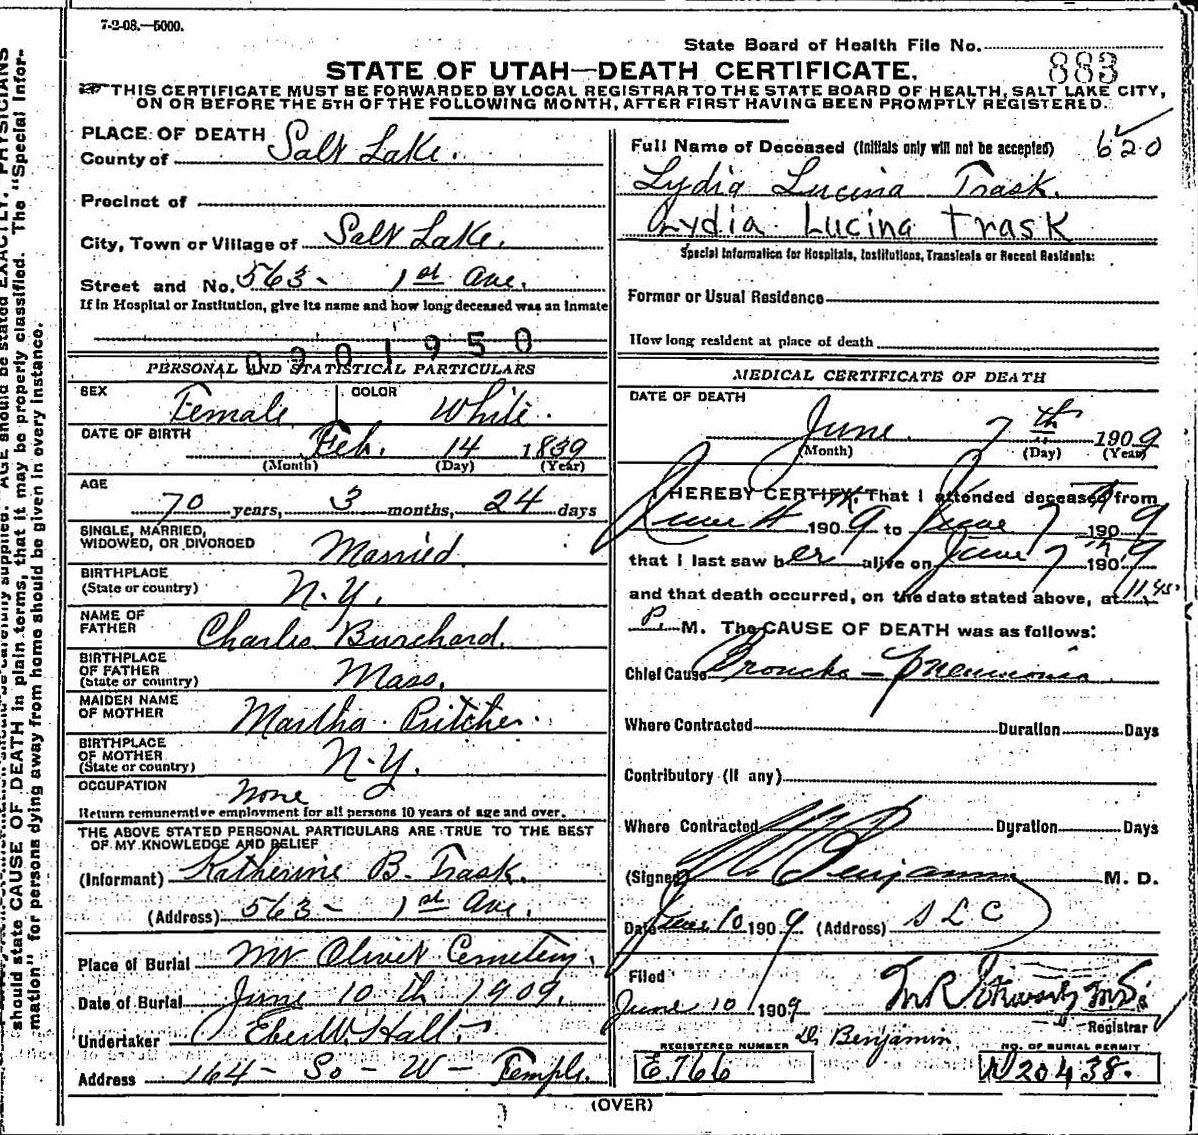 7-2-08.—5000.
State Board of Health File No.
883
STATE OF UTAH—DEATH CERTIFICATE.
THIS CERTIFICATE MUST BE FORWARDED BY LOCAL REGISTRAR TO THE STATE BOARD OF HEALTH, SALT LAKE CITY,
ON OR BEFORE THE 5TH OF THE FOLLOWING MONTH, AFTER FIRST HAVING BEEN PROMPTLY REGISTERED.
PLACE OF DEATH
County of Salt Lake.
Precinct of
City, Town or Village of Salt Lake.
Street and No. 563 - 1st Ave.
If in Hospital or Institution, give its name and how long deceased was an inmate
0901950
PERSONAL AND STATISTICAL PARTICULARS
SEX Female COLOR White.
DATE OF BIRTH Feb. 14 1839
(Month) (Day) (Year)
AGE
70 years, 3 months, 24 days
SINGLE, MARRIED,
WIDOWED, OR DIVORCED Married.
BIRTHPLACE
(State or country) N.Y.
NAME OF
FATHER Charles Burchard.
BIRTHPLACE
OF FATHER
(State or country) Mass.
MAIDEN NAME
OF MOTHER Martha Pritcher.
BIRTHPLACE
OF MOTHER
(State or country) N.Y.
OCCUPATION None
Return remunerative employment for all persons 10 years of age and over.
THE ABOVE STATED PERSONAL PARTICULARS ARE TRUE TO THE BEST
OF MY KNOWLEDGE AND BELIEF
(Informant) Katherine B. Trask.
(Address) 563 - 1st Ave.
Place of Burial Mt Olivet Cemetery.
Date of Burial June 10th 1909.
Undertaker Eber W. Hall
Address 164 - So - W - Temple.
Full Name of Deceased (Initials only will not be accepted) 620
Lydia Lucina Trask.
Lydia Lucina Trask
Special Information for Hospitals, Institutions, Transients or Recent Residents:
Former or Usual Residence
How long resident at place of death
MEDICAL CERTIFICATE OF DEATH
DATE OF DEATH
June 7th 1909
(Month) (Day) (Year)
I HEREBY CERTIFY, That I attended deceased from
June 4th 1909 to June 7th 1909
that I last saw her alive on June 7th 1909
and that death occurred, on the date stated above, at 11.45
P. M. The CAUSE OF DEATH was as follows:
Chief Cause Broncho - Pneumonia
Where Contracted Duration Days
Contributory (If any)
Where Contracted Duration Days
(Signed) Benjamin M. D.
Date June 10 1909 (Address) S L C
Filed
June 10 1909
Registrar
Dr Benjamin.
REGISTERED NUMBER
E.766
NO. OF BURIAL PERMIT
20438.
(OVER)
should state CAUSE OF DEATH in plain terms, that it may be properly classified. The "Special Infor-
mation" for persons dying away from home should be given in every instance.